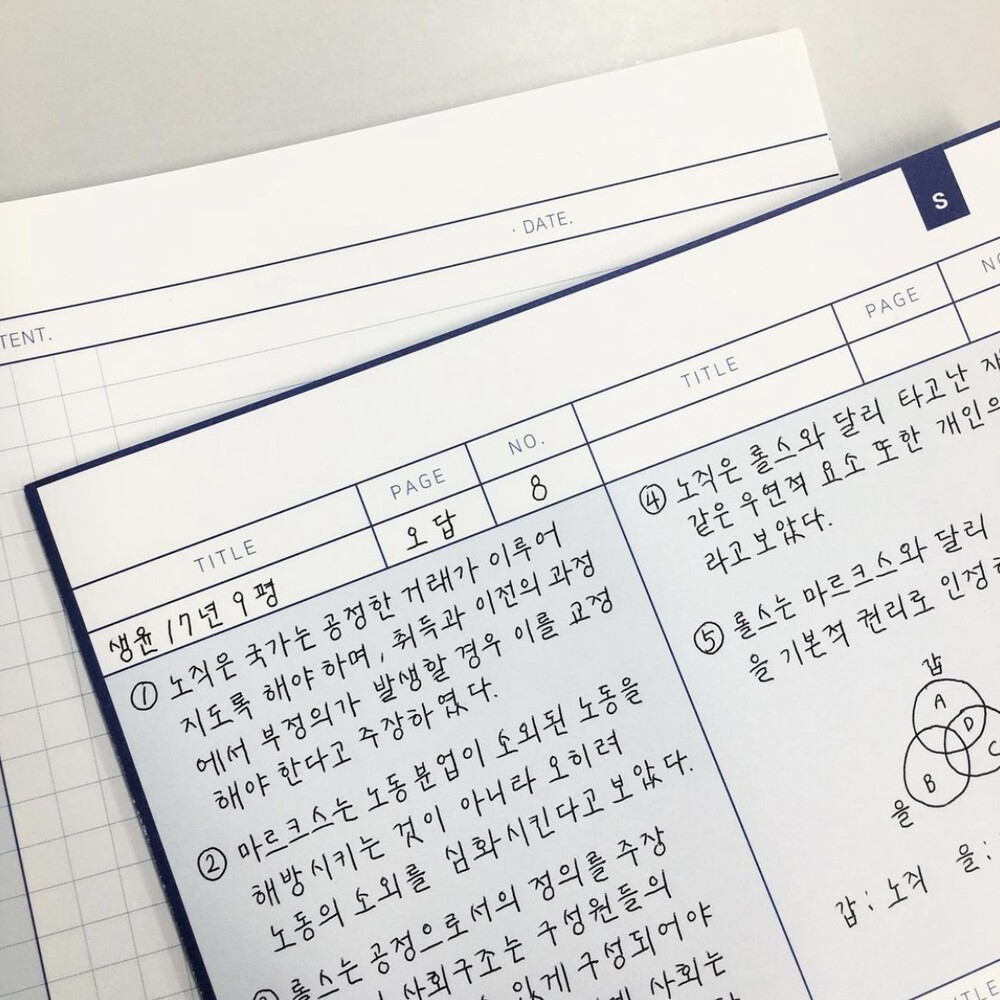 · DATE.
TENT.
S
TITLE
PAGE
NO.
생윤 17년 9평
오답
8
① 노직은 국가는 공정한 거래가 이루어
지도록 해야 하며, 취득과 이전의 과정
에서 부정의가 발생할 경우 이를 교정
해야 한다고 주장하였다.
② 마르크스는 노동분업이 소외된 노동을
해방시키는 것이 아니라 오히려
노동의 소외를 심화시킨다고 보았다.
롤스는 공정으로서의 정의를 주장
사회구조는 구성원들의
있게 구성되어야
사회는
TITLE
PAGE
④ 노직은 롤스와 달리 타고난
같은 우연적 요소 또한 개인의
라고 보았다.
⑤ 롤스는 마르크스와 달리
을 기본적 권리로 인정
갑
A
D
B
C
을
갑 : 노직 을 :